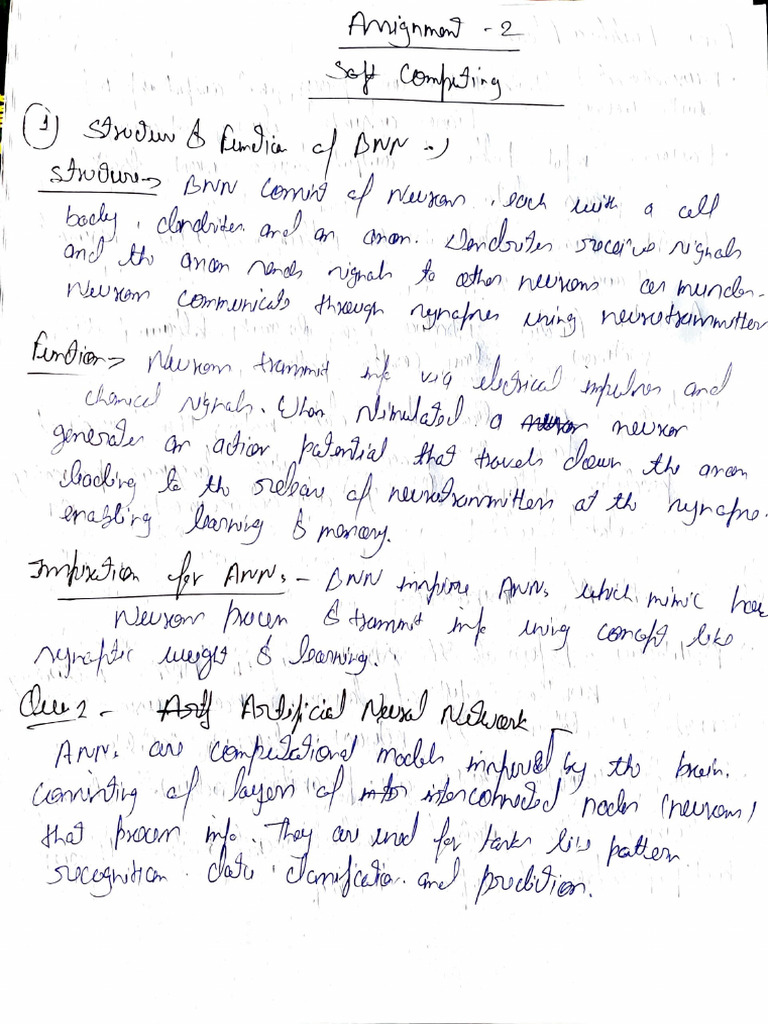 Assignment - 2
Soft Computing
1) Structure & Function of BNN :-)
Structure → BNN consist of Neurons, each with a cell
body, dendrites and an axon. Dendrites receive signals
and the axon sends signals to other neurons or muscles.
Neuron communicate through synapses using neurotransmitters
Function → Neurons transmit info via electrical impulses and
chemical signals. When stimulated a neuron
generates an action potential that travels down the axon
leading to the release of neurotransmitters at the synapse.
enabling learning & memory.
Inspiration for ANNs - BNN inspire ANNs which mimic how
Neurons process & transmit info using concept like
synaptic weight & learning.
Que 2 - Artificial Neural Network
ANNs are computational models inspired by the brain.
Consisting of layers of interconnected nodes (neurons)
that process info. They are used for tasks like pattern
recognition, data classification and prediction.